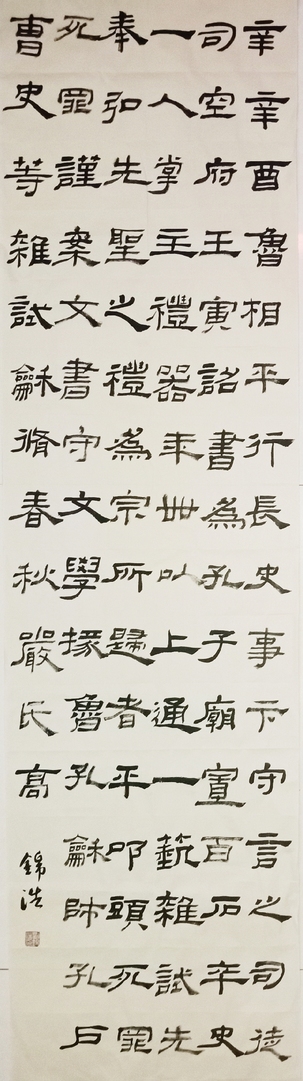 辛辛酉魯相平行長史事卞守言之司徒
司空府王寅詔書為孔子廟置百石卒史
一人掌主禮器年卌以上通一蓺雜試先
奉弘先聖之禮為宗所歸者平叩頭死罪
死罪謹案文書守文學掾魯孔龢師孔户
曹史等雜試龢脩春秋嚴氏高
錦浩